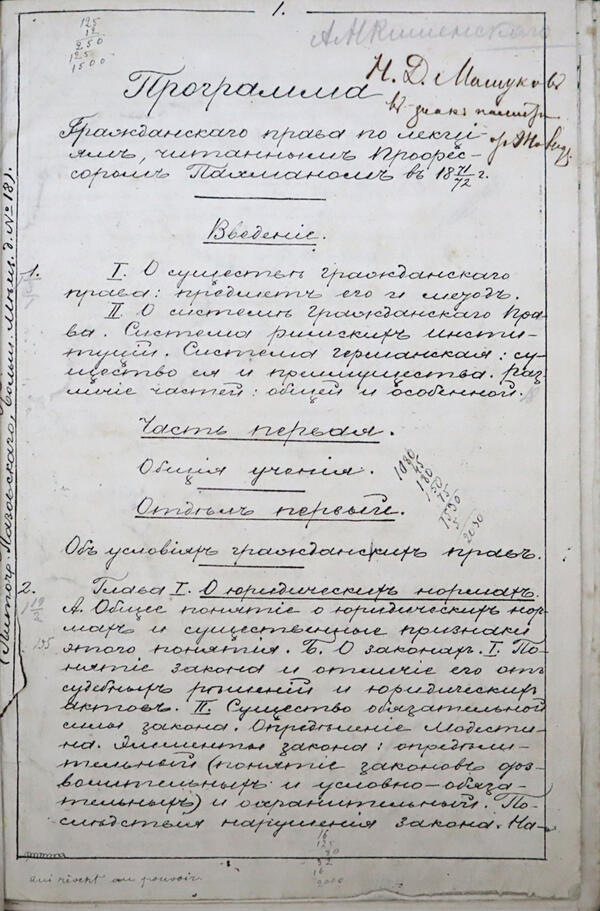 1.
125
12
250
125
1500
А.Н. Кишенскаго
Н. Д. Машуковъ
въ знакъ памяти
Программа
Гражданскаго права по лекці-
ямъ, читаннымъ Профес-
соромъ Пахманомъ въ 18 71/72 г.
Введеніе.
1. I. О существѣ гражданскаго
права: предметъ его и методъ.
II. О системѣ гражданскаго пра-
ва. Система римскихъ инсти-
туцій. Система германская: су-
щество ея и преимущества. Раз-
личіе частей: общей и особенной.
Часть первая.
Общія ученія.
Отдѣлъ первый.
Объ условіяхъ гражданскихъ правъ.
2. Глава I. О юридическихъ нормахъ.
А. Общее понятіе о юридическихъ нор-
махъ и существенные признаки
этого понятія. Б. О законахъ. I. По-
нятіе закона и отличіе его отъ
судебныхъ рѣшеній и юридическихъ
актовъ. II. Существо обязательной
силы закона. Опредѣленіе Модести-
на. Элементы закона: опредѣли-
тельный (понятіе законовъ доз-
волительныхъ и условно-обяза-
тельныхъ) и охранительный. По-
слѣдствія нарушенія закона. На-
(Литогр. Мазовскаго, больш. Мѣщ. д. № 13).
1080
45
180
150
75
1530
5
2030
195
16
125
80
32
16
2000
qui rêvent au pouvoir